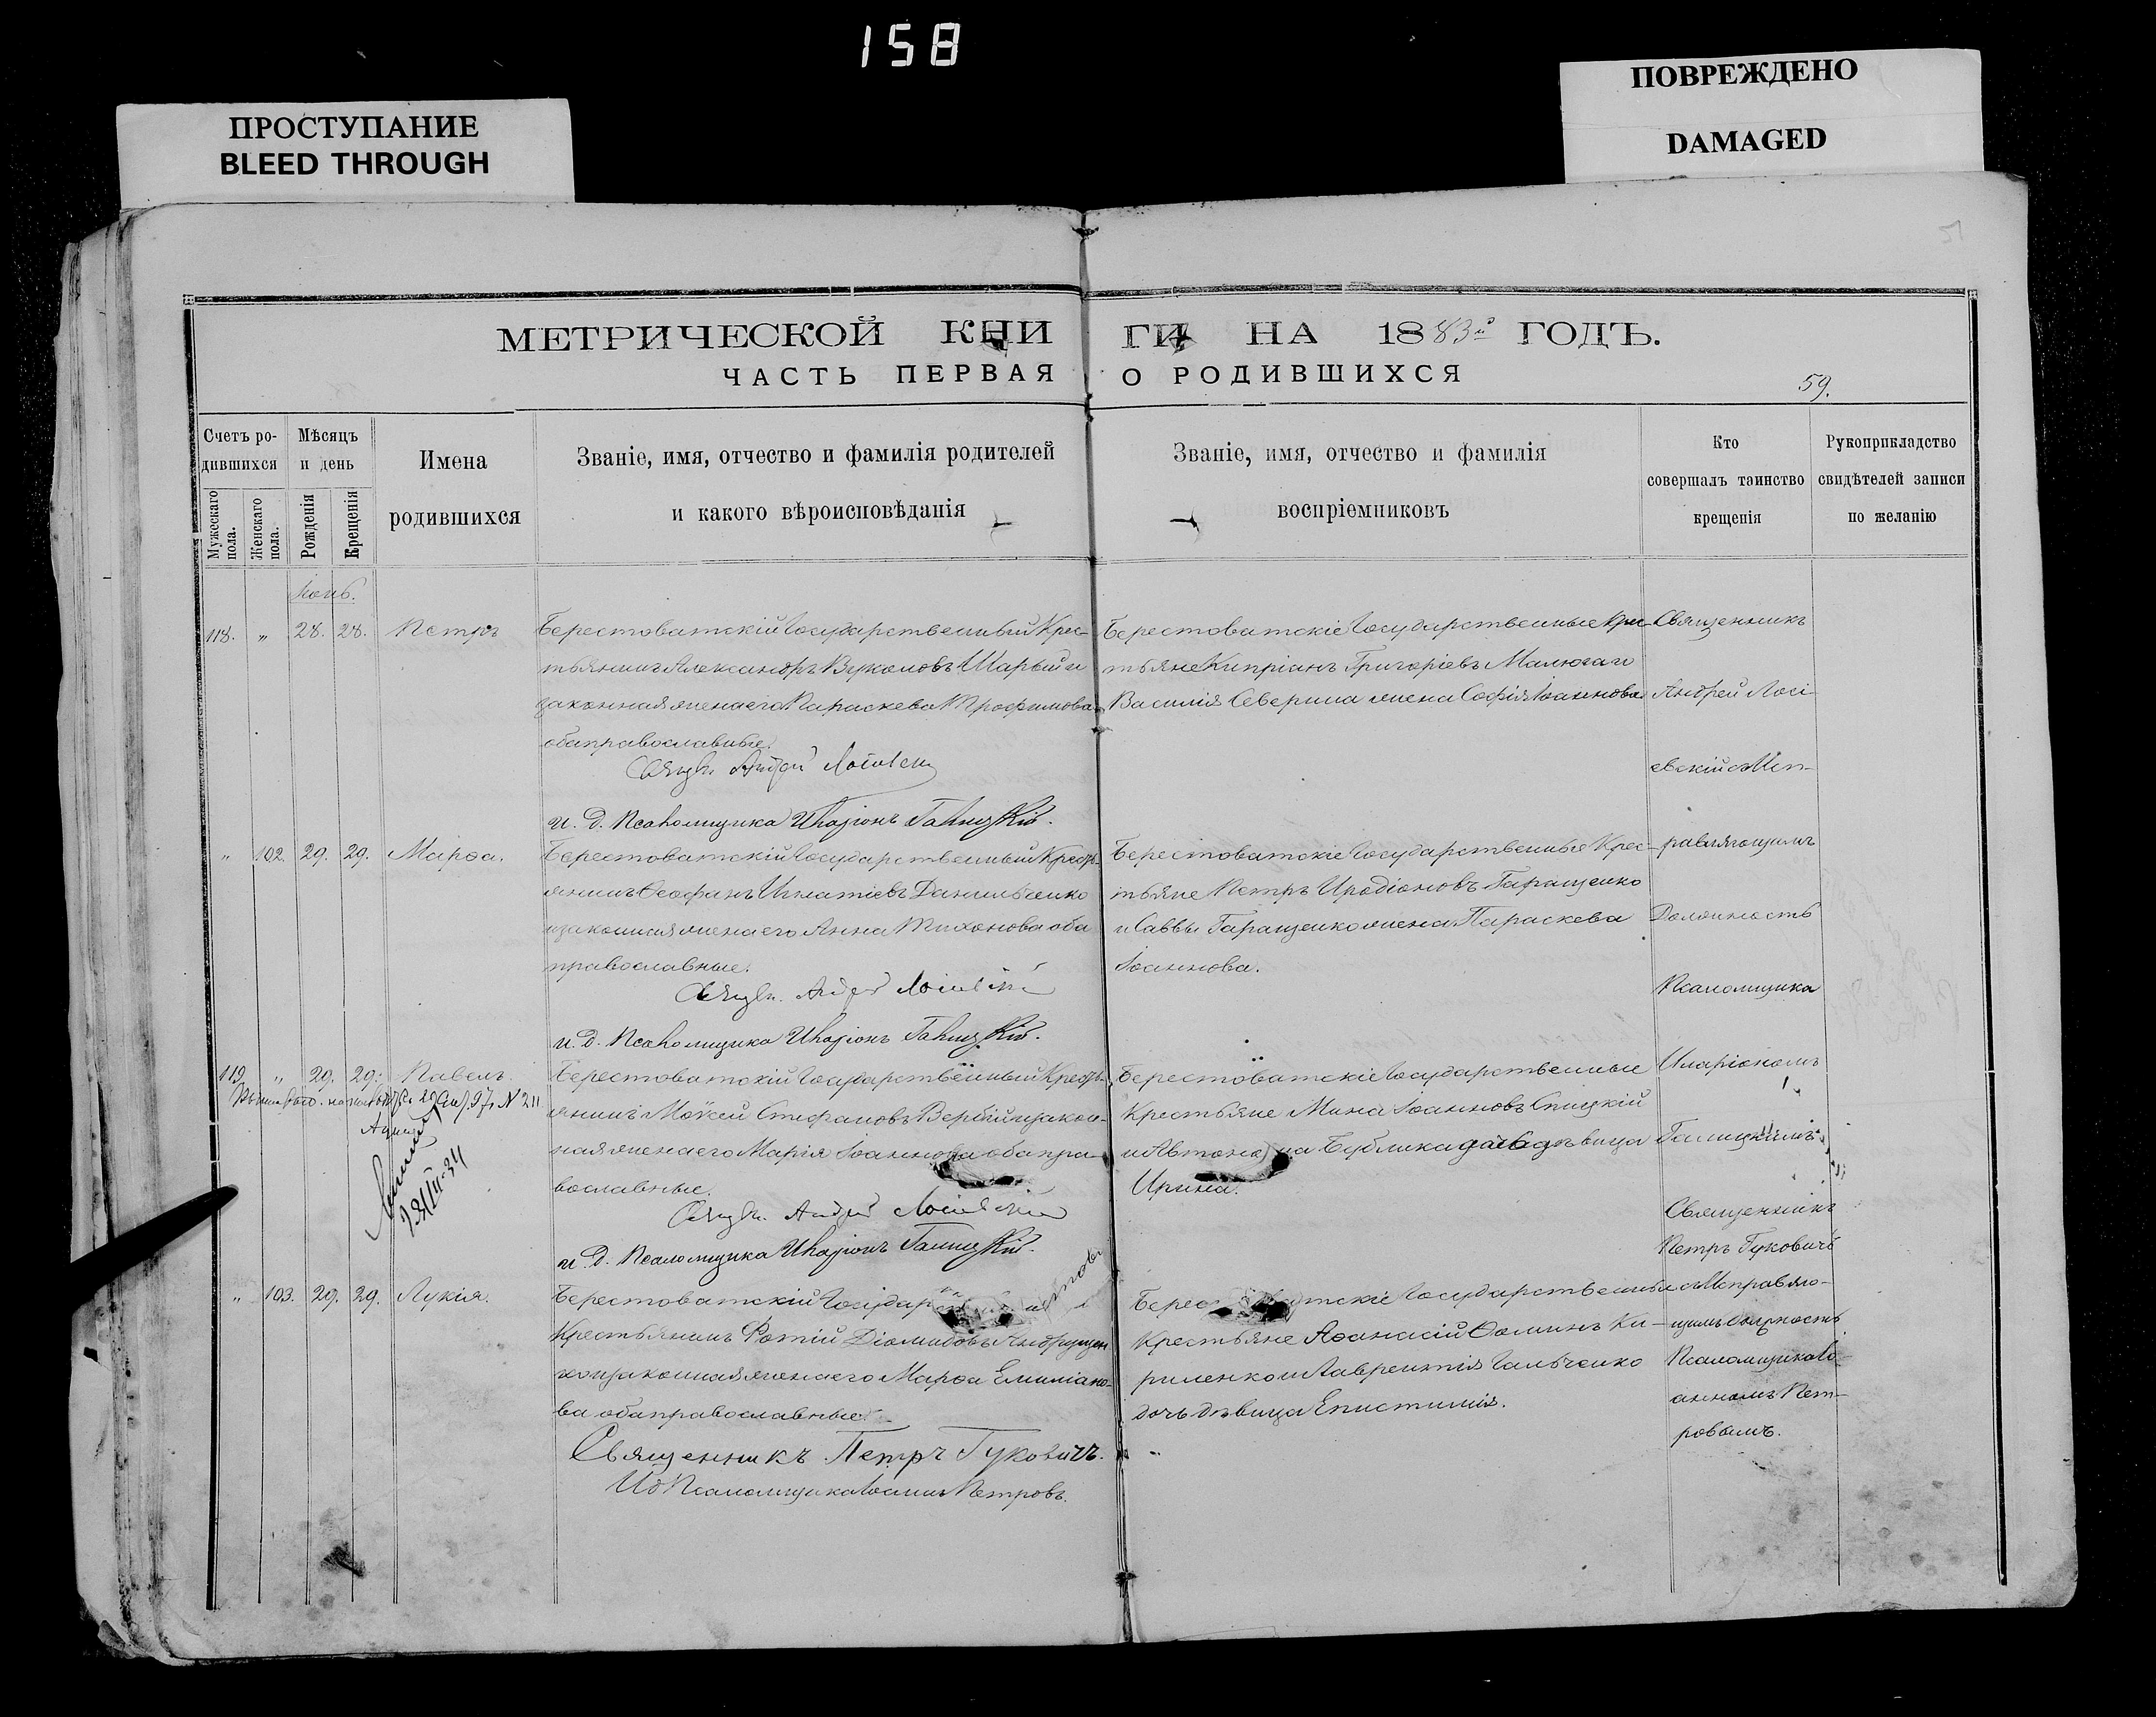 158
ПРОСТУПАНИЕ
BLEED THROUGH
ПОВРЕЖДЕНО
DAMAGED
МЕТРИЧЕСКОЙ КНИГИ НА 1883й ГОДЪ.
ЧАСТЬ ПЕРВАЯ О РОДИВШИХСЯ
59.
Счетъ ро-
дившихся
Мужескаго пола.
Женскаго пола.
Мѣсяцъ
и день
Рожденія
Крещенія
Имена
родившихся
Званіе, имя, отчество и фамилія родителей
и какого вѣроисповѣданія
Званіе, имя, отчество и фамилія
воспріемниковъ
Кто
совершалъ таинство
крещенія
Рукоприкладство
свидѣтелей записи
по желанію
118. „ 28. 28. Петръ
Берестоватскій Государственный Крес-
тьянинъ Александръ Вуколовъ Шарый и
законная жена его Параскева Трофимова
оба православные.
Андрей
и. д. Псаломщика Иларіонъ Галицкій.
Берестоватскіе Государственные Кре-
тьяне Кипріанъ Григоріевъ Малюга и
Василія Северина жена Софія Іоаннова
Священникъ
Андрей Лосі-
евскій с Исп-
равляющимъ
Должность
Псаломщика
Иларіономъ
Галицкимъ
„ 102. 29. 29. Марѳа.
Берестоватскій Государственный Крест-
янинъ Ѳеофанъ Игнатіевъ Данильченко
и законная жена его Анна Тихонова оба
православные.
Андрей
и. д. Псаломщика Иларіонъ Галицкій.
Берестоватскіе Государственные Крес-
тьяне Петръ Иродіоновъ Гаращенко
и Саввы Гаращенко жена Параскева
Іоаннова.
119 „ 29. 29. Павелъ
N 211
Берестоватскій Государственный Крест-
янинъ Моѵсей Стефановъ Вербій и закон-
ная жена его Марія Іоаннова оба пра-
вославные.
Андрей
и. д. Псаломщика Иларіонъ Галицкій.
Берестоватскіе Государственные
Крестьяне Мина Іоанновъ Спицкій
Бублика дочь дѣвица
Ирина.
Священникъ
Петръ Гуковичъ
с Исправляю-
щимъ Должность
Псаломщика Іо-
анномъ Пет-
ровымъ.
„ 103. 29. 29. Лукія.
Берестоватскій
Крестьянинъ Фотій Діомидовъ Андрущен
ко и законная жена его Марѳа Емиліано-
ва оба православные.
Священникъ Петръ Гуковичъ.
Ид Псаломщика Іоаннъ Петровъ.
Государственные
Крестьяне Аѳанасій Ѳоминъ Ки-
риленко и Лаврентія Гальченко
дочь дѣвица Епистимія.